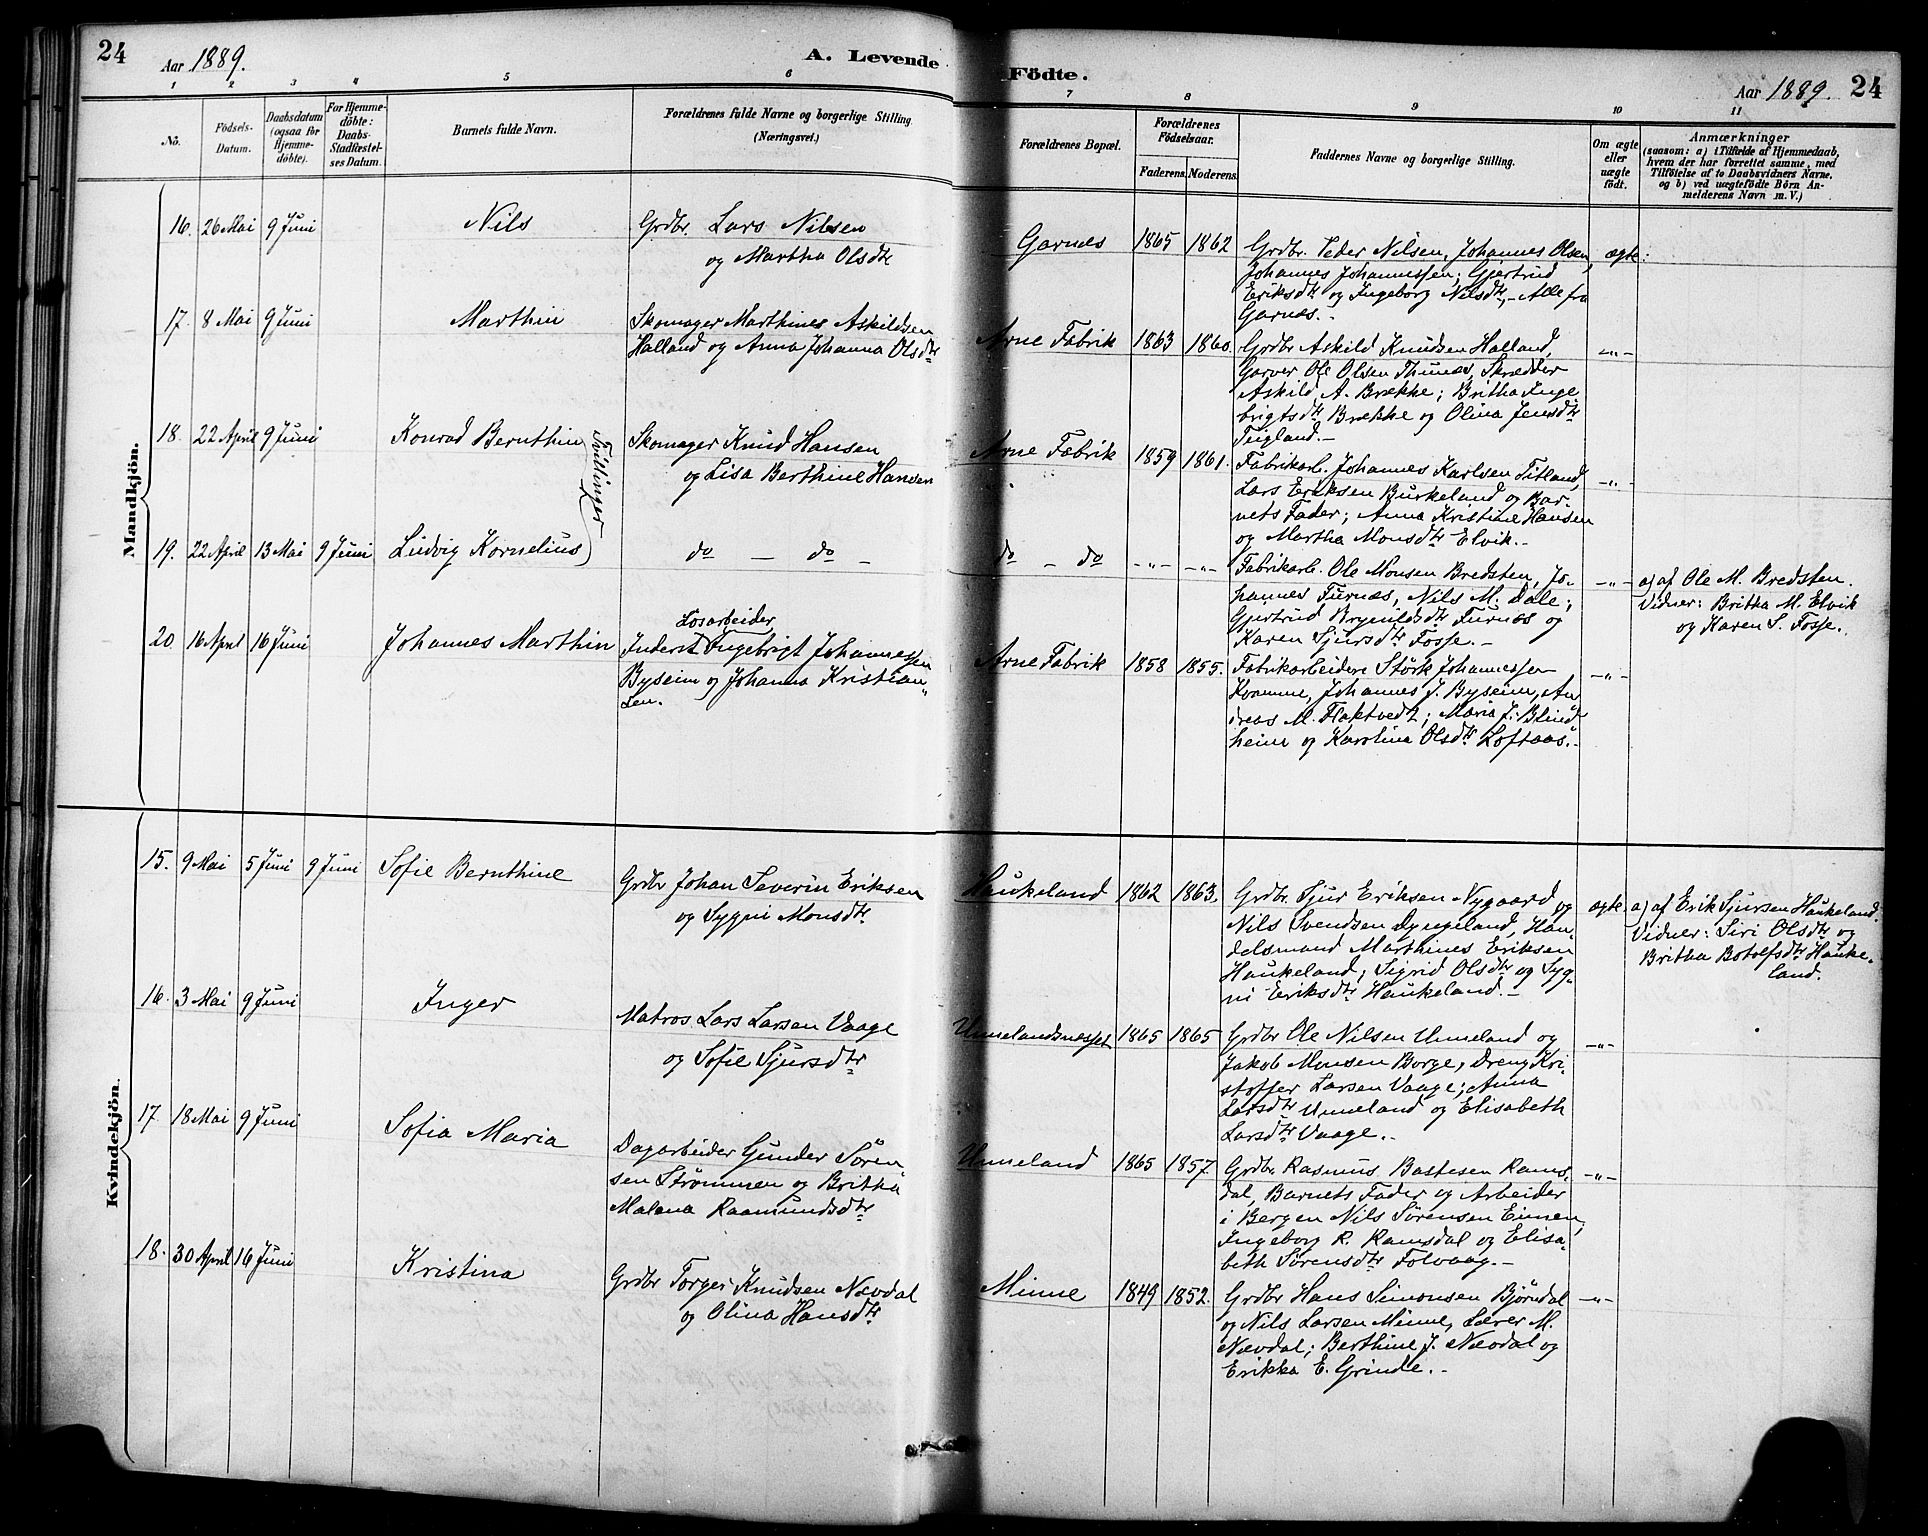 24
Aar 1889.
A. Levende
Födte.
Aar 1889.
24
1 2 3 4 5 6 7 8 9 10 11
No.
Födsels-
Datum.
Daabsdatum
(ogsaa för
Hjemme-
döbte).
For Hjemme-
döbte:
Daabs-
Stadfæstel-
ses Datum.
Barnets fulde Navn.
Forældrenes fulde Navne og borgerlige Stilling
(Næringsvei.)
Forældrenes Bopæl.
Forældrenes
Födselsaar.
Faderens. Moderens.
Faddernes Navne og borgerlige Stilling.
Om ægte
eller
uægte
födt.
Anmærkninger
(saasom: a) i Tilfælde af Hjemmedaab,
hvem der har forrettet samme, med
Tilföielse af to Daabsvidners Navne,
og b) ved uægtefödte Börn An-
melderens Navn m. V.)
Mandkjön.
16. 26 Mai 9 Juni
Nils
Grdbr. Lars Nilsen
og Martha Olsdtr
Garnes 1865 1862
Grdbr. Peder Nilsen, Johannes Olsen,
Johannes Johannessen; Gjertrud
Eriksdtr og Ingeborg Nilsdtr, - Alle fra
Garnæs. -
ægte:
17. 8 Mai 9 Juni
Marthin
Skomager Marthines Askildsen
Halland og Anna Johanna Olsdtr
Arne Fabrik 1863 1860.
Grdbr Askild Knudsen Halland,
Garver Ole Olsen Thunæs, Skrædder
Askild A. Brække; Britha Inge
brigtsdtr Brække og Olina Jensdtr
Teigland. -
-"-
18. 22 April 9 Juni
Konrad Bernthin
Tvillinger
Skomager Knud Hansen
og Lisa Berthine Hansen
Arne Fabrik 1859 1861.
Fabrikarb. Johannes Karlsen Titland,
Lars Eriksen Burkeland og Bar-
nets Fader; Anna Kristine Hansen
og Martha Monsdtr Elvik. -
-"-
19. 22 April 13 Mai 9 Juni
Ludvig Kornelius
do - do -
do - do -"- -"-
Fabrikarb. Ole Monsen Bredsten, Jo-
hannes Furnæs, Nils M. Dale;
Gjertrud Brynildsdtr Furnæs og
Karen Sjursdtr Fosse. -
-"-
a) af Ole M. Bredsten.
Vidner: Britha M. Elvik
og Karen S. Fosse.
20. 16 April 16 Juni
Johannes Marthin
Losarbeider
Inderst Ingebrigt Johannessen
Byseim og Johanna Kristian-
sen.
Arne Fabrik 1858 1855.
Fabrikarbeidere Störk Johannessen
Kvamme, Johannes J. Byseim, An
dreas M. Flaktvedt; Maria J. Blind
heim og Karolina Olsdtr Loftaas. -
-"-
Kvindekjön.
15. 9 Mai 5 Juni 9 Juni
Sofie Bernthine
Grdbr Johan Severin Eriksen
og Sygni Monsdtr
Haukeland 1862 1863.
Grdbr. Sjur Eriksen Nygaard og
Nils Svendsen Dyngeland, Han-
delsmand Marthines Eriksen
Haukeland; Sigrid Olsdtr og Syg-
ni Eriksdtr Haukeland. -
ægte.
a) af Erik Sjursen Haukeland.
Vidner: Siri Olsdtr og
Britha Botolfsdtr Hauke-
land.
16. 3 Mai 9 Juni
Inger
Matros Lars Larsen Vaage
og Sofie Sjursdtr
Unnelandsnesset 1865 1865
Grdbr Ole Nilsen Unneland og
Jakob Monsen Borge, Dreng Kri-
stoffer Larsen Vaage; Anna
Larsdtr Unneland og Elisabeth
Larsdtr Vaage. -
-"-
17. 18 Mai 9 Juni
Sofia Maria
Dagarbeider Gunder Sören-
sen Strömmen og Britha
Malena Raamundsdtr
Unneland 1865 1857.
Grdbr Rasmus Bastesen Rams-
dal, Barnets Fader og Arbeider
i Bergen Nils Sörensen Eimen,
Ingeborg R. Ramsdal og Elisa-
beth Sörensdtr Folvaag. -
-"-
18. 30 April 16 Juni
Kristina
Grdbr Torger Knudsen Nævdal
og Olina Hansdtr
Minne 1849 1852.
Grdbr Hans Simonsen Björndal
og Nils Larsen Minne, Lærer M.
Nævdal; Berthine J. Nævdal og
Erikka E. Grinde. -
-"-